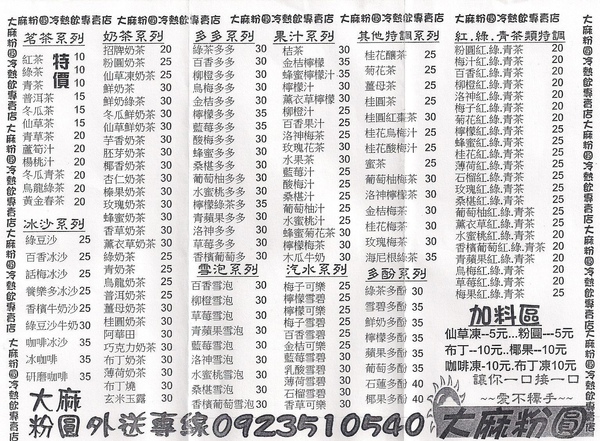 大麻粉圓冷熱飲專賣店 大麻粉圓冷熱飲專賣店 大麻粉圓冷熱飲專賣店 大麻粉圓冷熱飲專賣店
茗茶系列
特價
紅茶 10
綠茶 10
青茶 10
普洱茶 15
冬瓜茶 15
仙草茶 15
青草茶 20
蘆筍汁 20
楊桃汁 20
冬瓜青茶 20
烏龍綠茶 20
黃金春茶 20
冰沙系列
綠豆沙 25
百香冰沙 25
話梅冰沙 25
養樂多冰沙 25
香檳牛奶沙 25
綠豆沙牛奶 30
咖啡冰沙 35
冰咖啡 35
研磨咖啡 35
奶茶系列
招牌奶茶 20
粉圓奶茶 25
仙草凍奶茶 25
鮮奶茶 30
鮮奶綠茶 30
冬瓜鮮奶 30
仙草鮮奶 30
芋香奶茶 30
胚芽奶茶 30
椰香奶茶 30
杏仁奶茶 30
榛果奶茶 30
玫瑰奶茶 30
蜂蜜奶茶 30
香草奶茶 30
薰衣草奶茶 30
綠奶茶 25
青奶茶 25
烏龍奶茶 25
普洱奶茶 25
薑母奶茶 30
桂圓奶茶 30
阿華田 30
巧克力奶茶 30
布丁奶茶 35
薄荷奶茶 30
布丁燒 30
玄米玉露 30
多多系列
綠茶多多 30
百香多多 30
柳橙多多 30
梅子多多 30
金桔多多 30
檸檬多多 30
藍莓多多 30
桑椹多多 30
酸梅多多 30
蜂蜜多多 30
葡萄柚多多
水蜜桃多多
檸檬綠多多
青蘋果多多
洛神多多 30
草莓多多 30
香檳葡多多
雪泡系列
百香雪泡
柳橙雪泡
草莓雪泡
青蘋果雪泡
藍莓雪泡
洛神雪泡
水蜜桃雪泡
桑椹雪泡
石榴雪泡
果汁系列
桔茶 30
金桔檸檬 35
蜂蜜檸檬汁
檸檬汁
薰衣草檸檬
柳橙汁
百香果汁
洛神梅茶
玫瑰花茶
水果茶
藍莓汁
酸梅汁
桑椹汁
玫瑰梅茶
葡萄汁
水蜜桃汁
葡萄柚汁
檸檬梅茶
木瓜牛奶 30
汽水系列
梅子可樂
檸檬可樂
檸檬雪碧
桑椹雪碧
金桔雪碧
藍莓雪碧
乳酸雪碧
薄荷雪碧
香草可樂
其他特調系列
桂花釀茶 25
菊花茶 25
薑母茶 25
桂圓茶 25
桂圓紅棗茶 30
桂花烏梅汁 25
桂花酸梅汁 25
蜜茶 25
葡萄柚梅茶 30
洛神檸檬茶 30
金桔梅茶 30
桂花梅茶 30
玫瑰梅茶 30
海尼根綠茶 35
多酚系列
綠茶多酚 30
雪碧多酚 35
鮮奶多酚 35
檸檬多酚 35
蘋果多酚 35
葡萄多酚 35
石蓮多酚 40
蜂蜜多酚 40
紅.綠.青茶類特調
粉圓紅.綠.青茶 20
梅汁紅.綠.青茶 20
百香紅.綠.青茶 20
柳橙紅.綠.青茶 20
洛神紅.綠.青茶 20
梅子紅.綠.青茶 20
檸檬紅.綠.青茶 25
蜂蜜紅.綠.青茶 25
桂花紅.綠.青茶 25
薄荷紅.綠.青茶 25
石榴紅.綠.青茶 25
玫瑰紅.綠.青茶 25
葡萄柚紅.綠.青茶 25
水蜜桃紅.綠.青茶 25
香檳葡萄紅.綠.青茶 25
青蘋果紅.綠.青茶 25
草莓紅.綠.青茶 25
烏梅紅.綠.青茶 20
加料區
仙草凍--5元...粉圓---5元
布丁--10元..椰果--10元
咖啡凍-10元.布丁凍10元
讓你一口接一口
~~愛不擇手~~
大麻粉圓外送專線0923510540 大麻粉圓